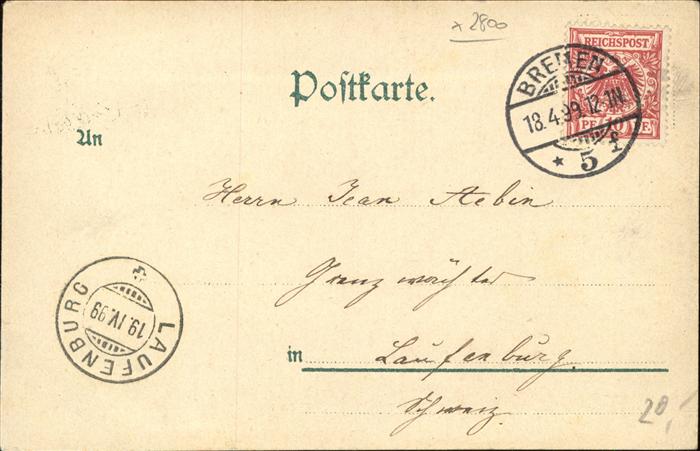 x 2800
REICHSPOST
PF. 10 PF.
BREMEN
18.4.99.12-1N.
* 5 f
Postkarte.
An
Herrn Jean Aebin
Grenzwächter
in Laufenburg.
Schweiz.
LAUFENBURG
19.IV.99
20,-